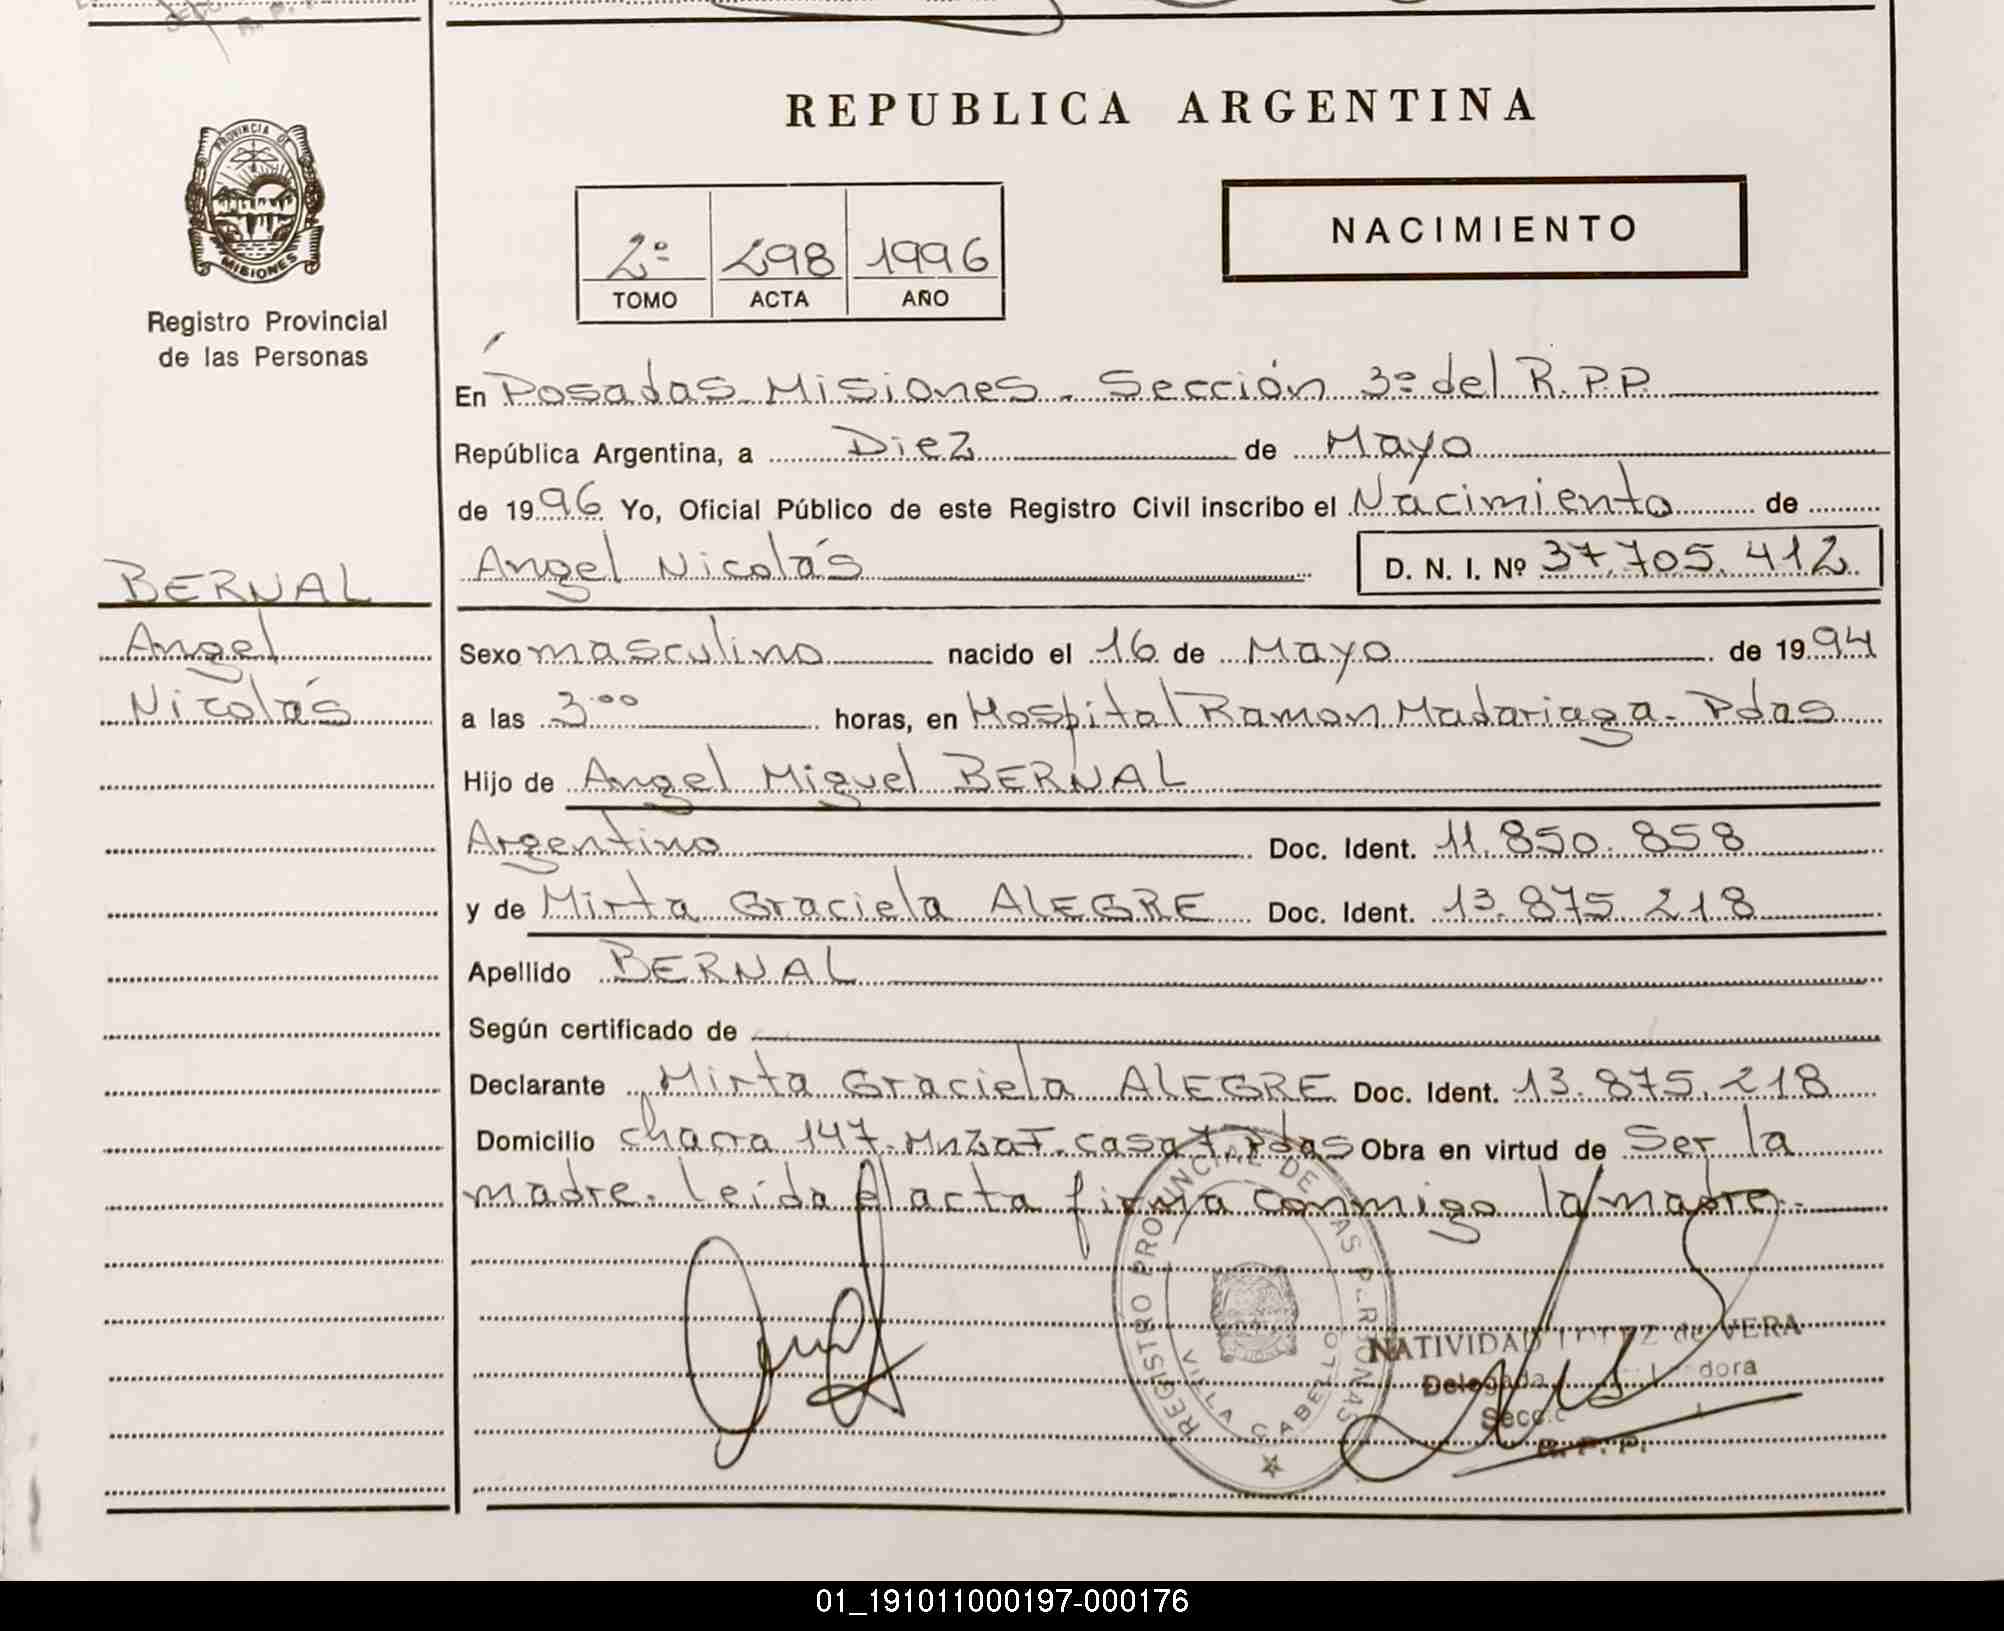 REPUBLICA ARGENTINA
PROVINCIA DE
MISIONES
Registro Provincial
de las Personas
2º 298 1996
TOMO ACTA AÑO
NACIMIENTO
En Posadas Misiones - Sección 3º del R.P.P.
República Argentina, a Diez de Mayo
de 1996 Yo, Oficial Público de este Registro Civil inscribo el Nacimiento de
Angel Nicolás D. N. I. Nº 37.705.412
BERNAL
Angel
Nicolás
Sexo masculino nacido el 16 de Mayo de 1994
a las 3:00 horas, en Hospital Ramon Madariaga - Pdas
Hijo de Angel Miguel BERNAL
Argentino Doc. Ident. 11.850.858
y de Mirta Graciela ALEGRE Doc. Ident. 13.875.218
Apellido BERNAL
Según certificado de
Declarante Mirta Graciela ALEGRE Doc. Ident. 13.875.218
Domicilio chacra 147. Mnza F. casa 7. Pdas Obra en virtud de Ser la
madre. Leída el acta firma conmigo la madre.
REGISTRO PROVINCIAL DE LAS PERSONAS
VILLA CABELLO
NATIVIDAD de VERA
Delegada
Secc.
R. P. P.
01_191011000197-000176